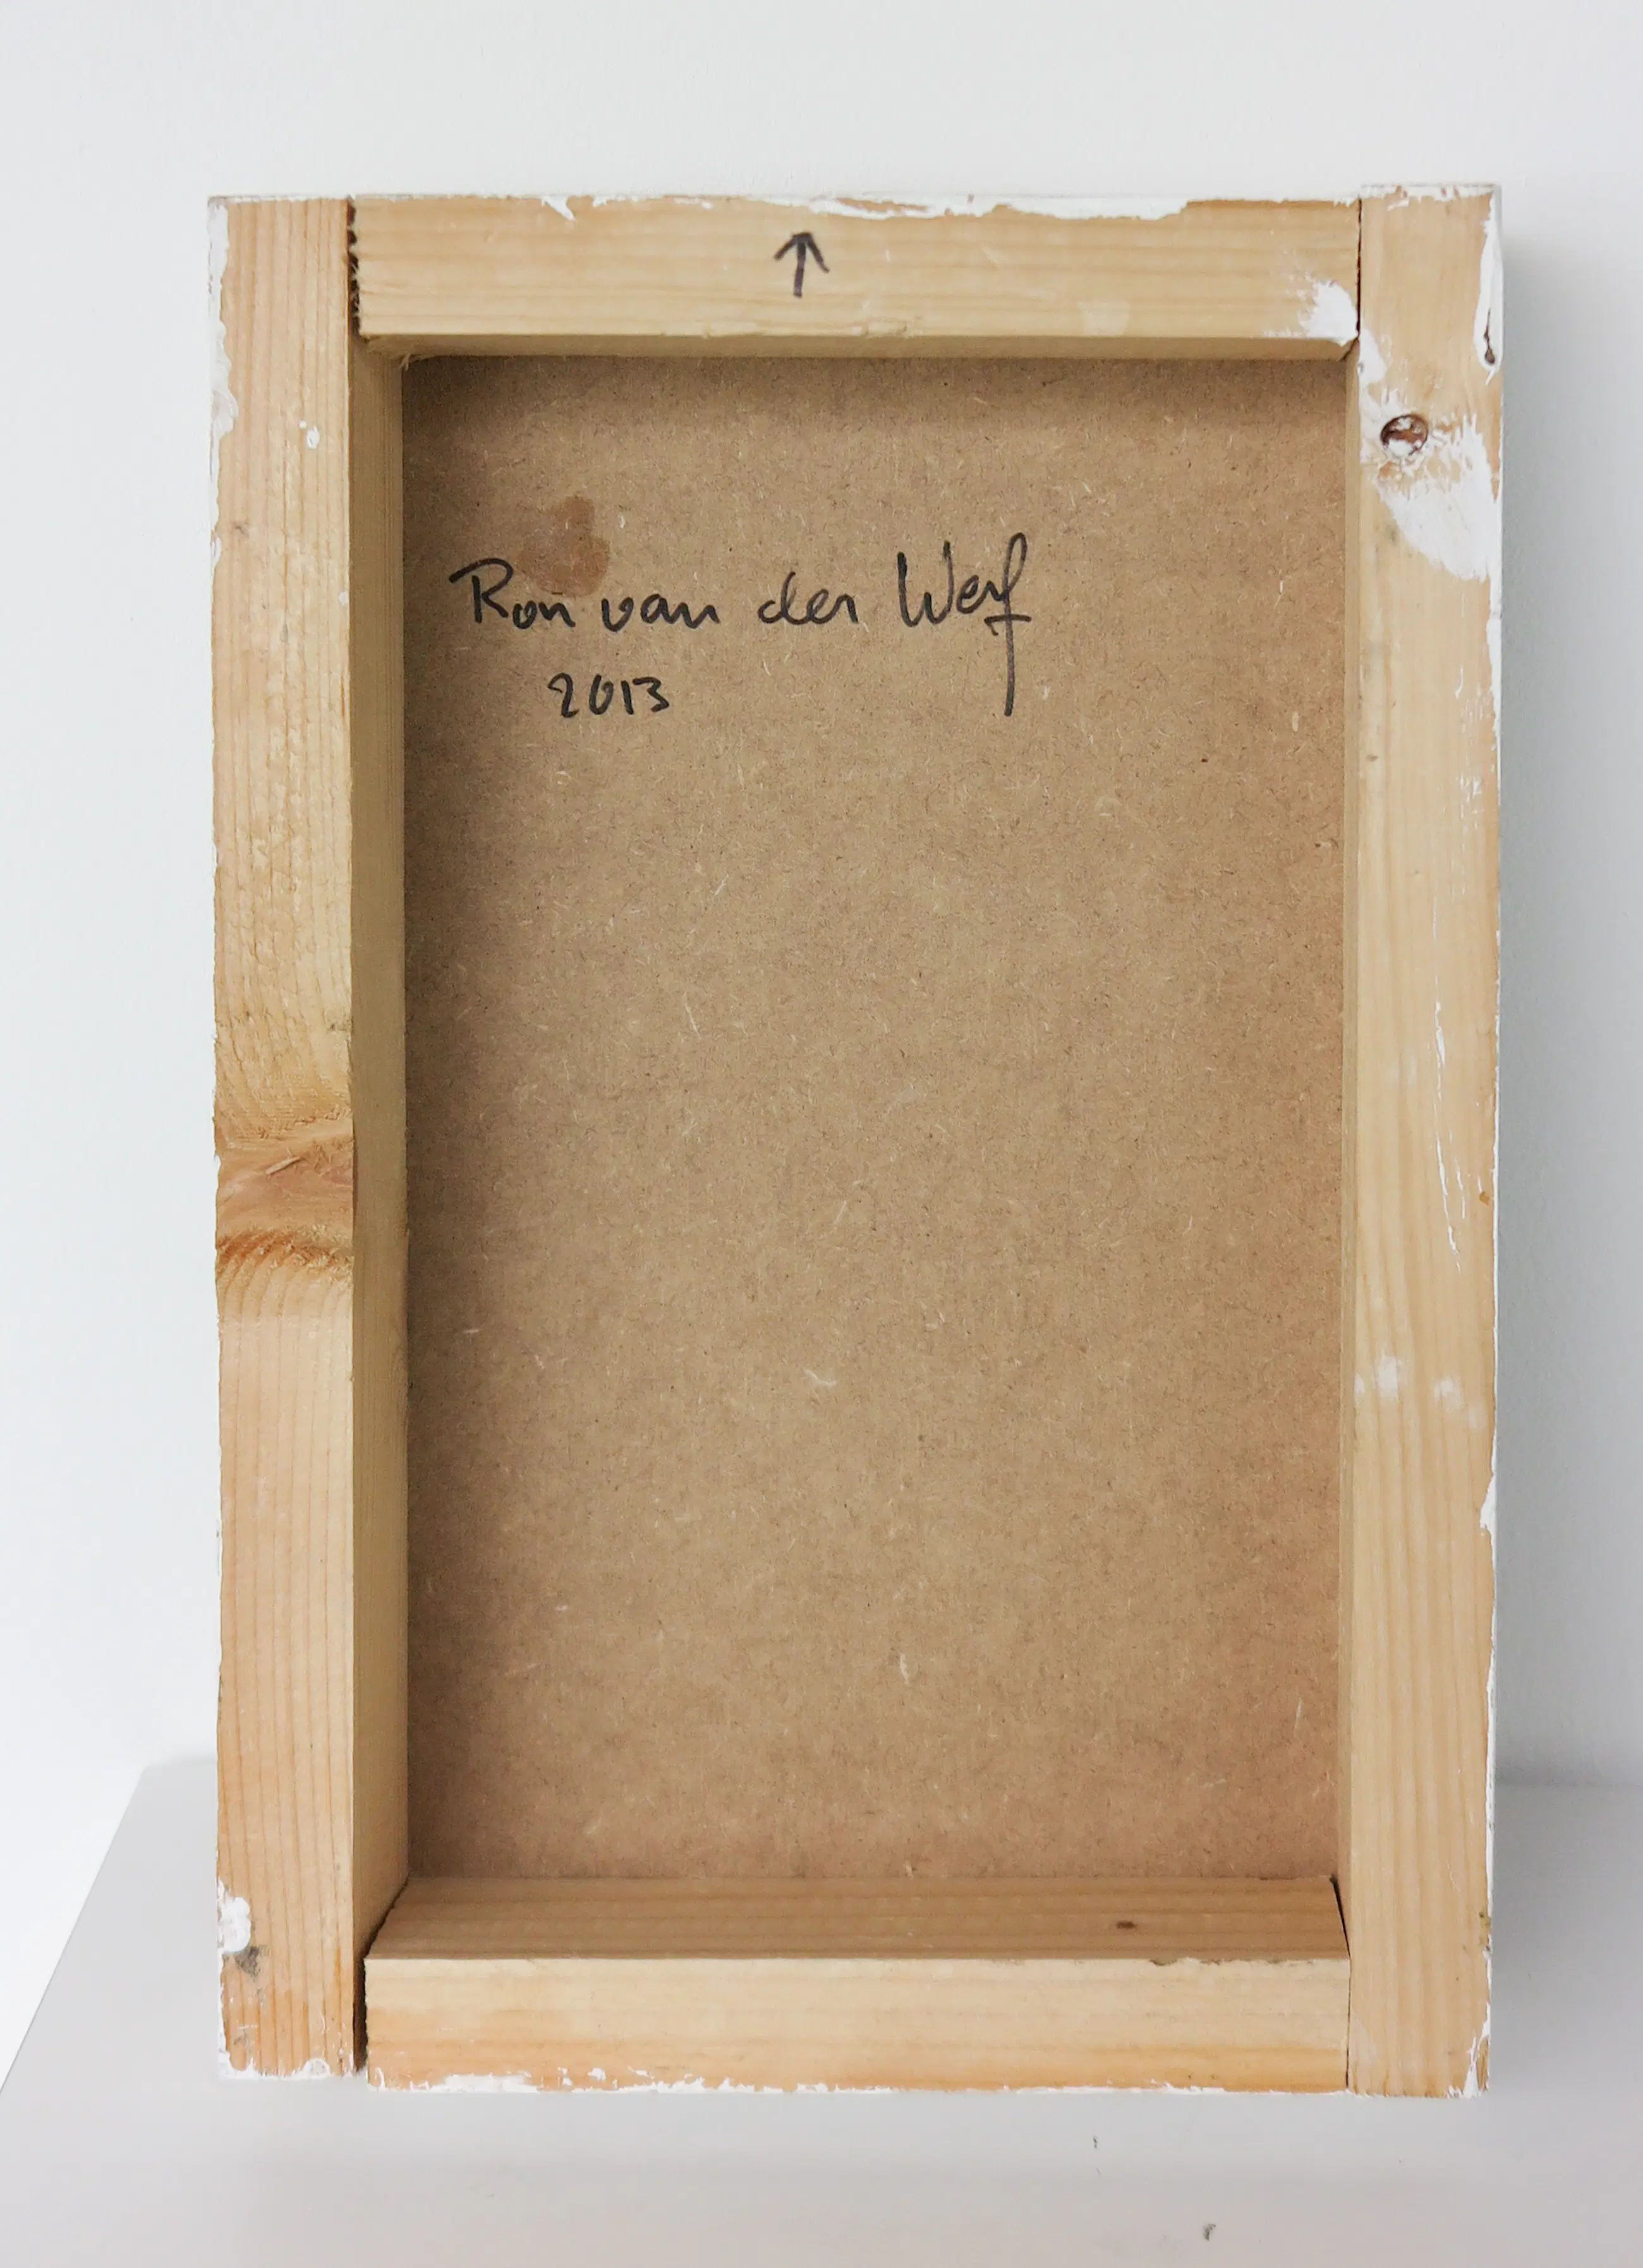 ↑
Ron van der Werf
2013